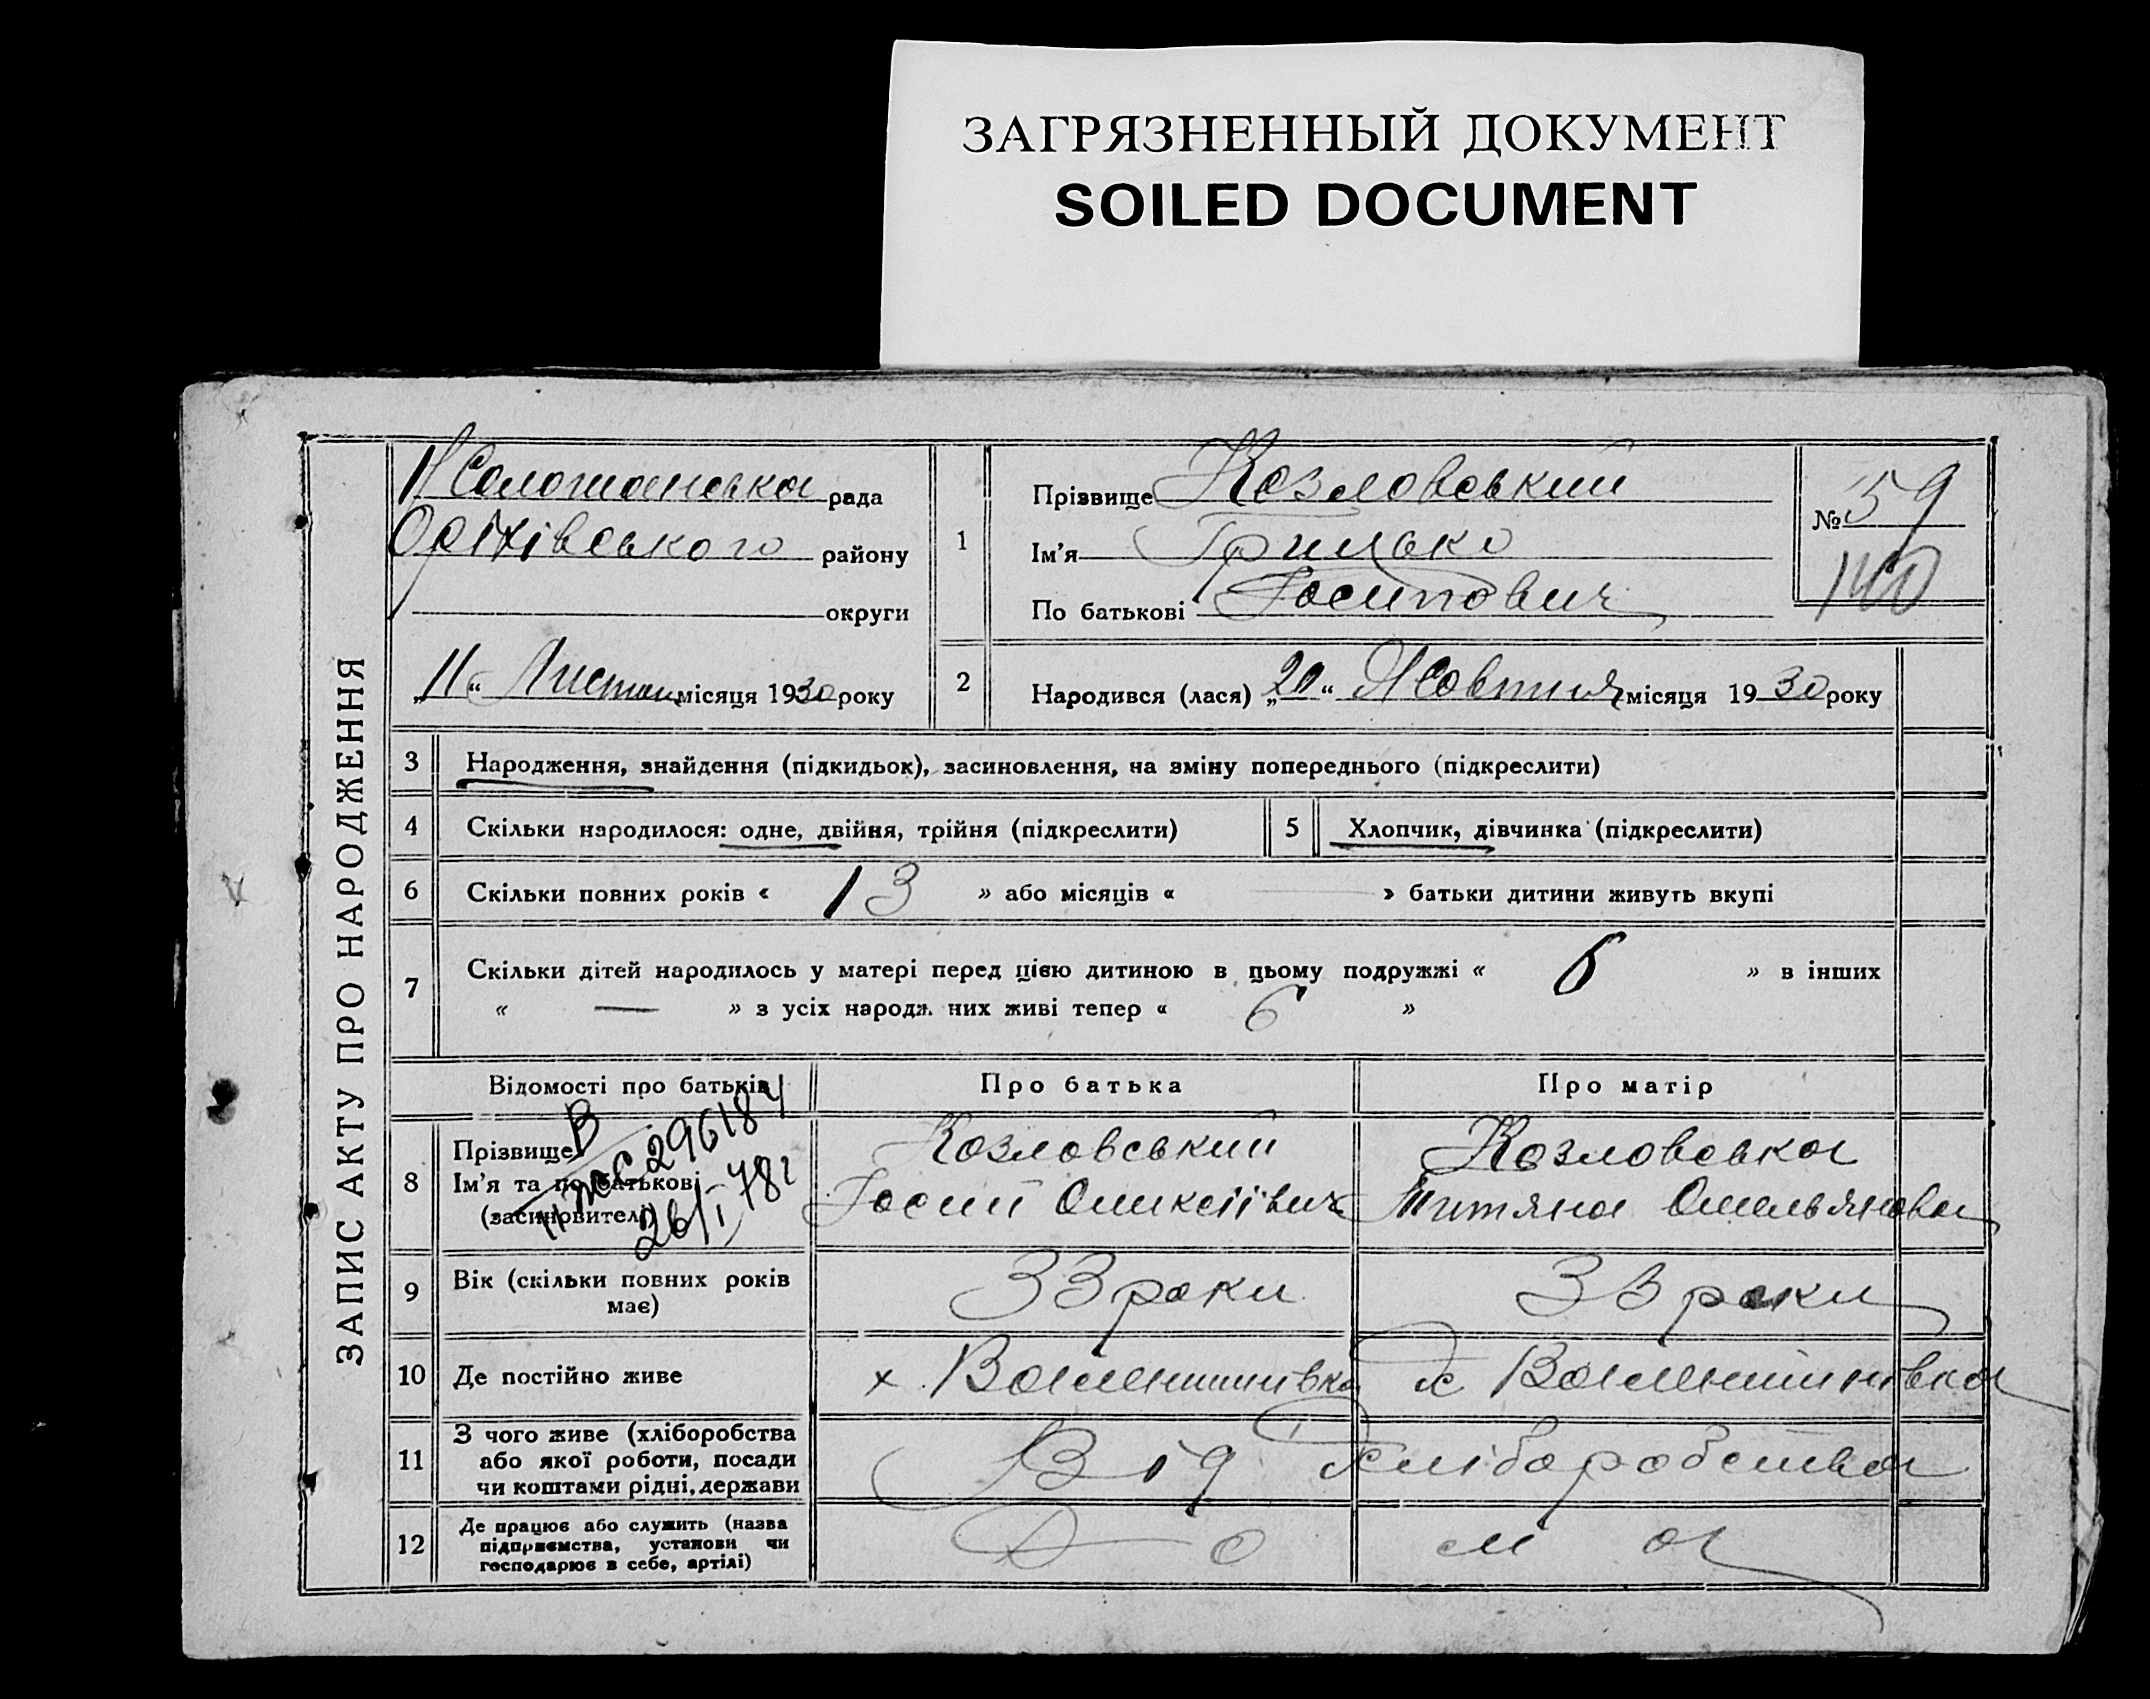 ЗАГРЯЗНЕННЫЙ ДОКУМЕНТ
SOILED DOCUMENT
ЗАПИС АКТУ ПРО НАРОДЖЕННЯ
рада
Оріхівського району
округи
„11“ Листоп місяця 1930 року
1
Прізвище Козловський
Ім'я Грицько
По батькові Йосипович
№ 59
140
2
Народився (лася) „20“ Жовтня місяця 1930 року
3 Народження, знайдення (підкидьок), засиновлення, на зміну попереднього (підкреслити)
4 Скільки народилося: одне, двійня, трійня (підкреслити)
5 Хлопчик, дівчинка (підкреслити)
6 Скільки повних років « 13 » або місяців « — » батьки дитини живуть вкупі
7 Скільки дітей народилось у матері перед цією дитиною в цьому подружжі « 6 » в інших
« — » з усіх народж. них живі тепер « 6 »
Відомості про батьків
Про батька
Про матір
8
Прізвище
Ім'я та по батькові
(засиновителі)
296184
26/I 78г
Козловський
Йосип Оликсіївич
Козловська
Титяна Омельянова
9 Вік (скільки повних років
має)
33 роки
33 роки
10 Де постійно живе
х.
х
11 З чого живе (хліборобства
або якої роботи, посади
чи коштами рідні, держави
Від хліборобства
12 Де працює або служить (назва
підприємства, установи чи
господарює в себе, артілі)
Дома